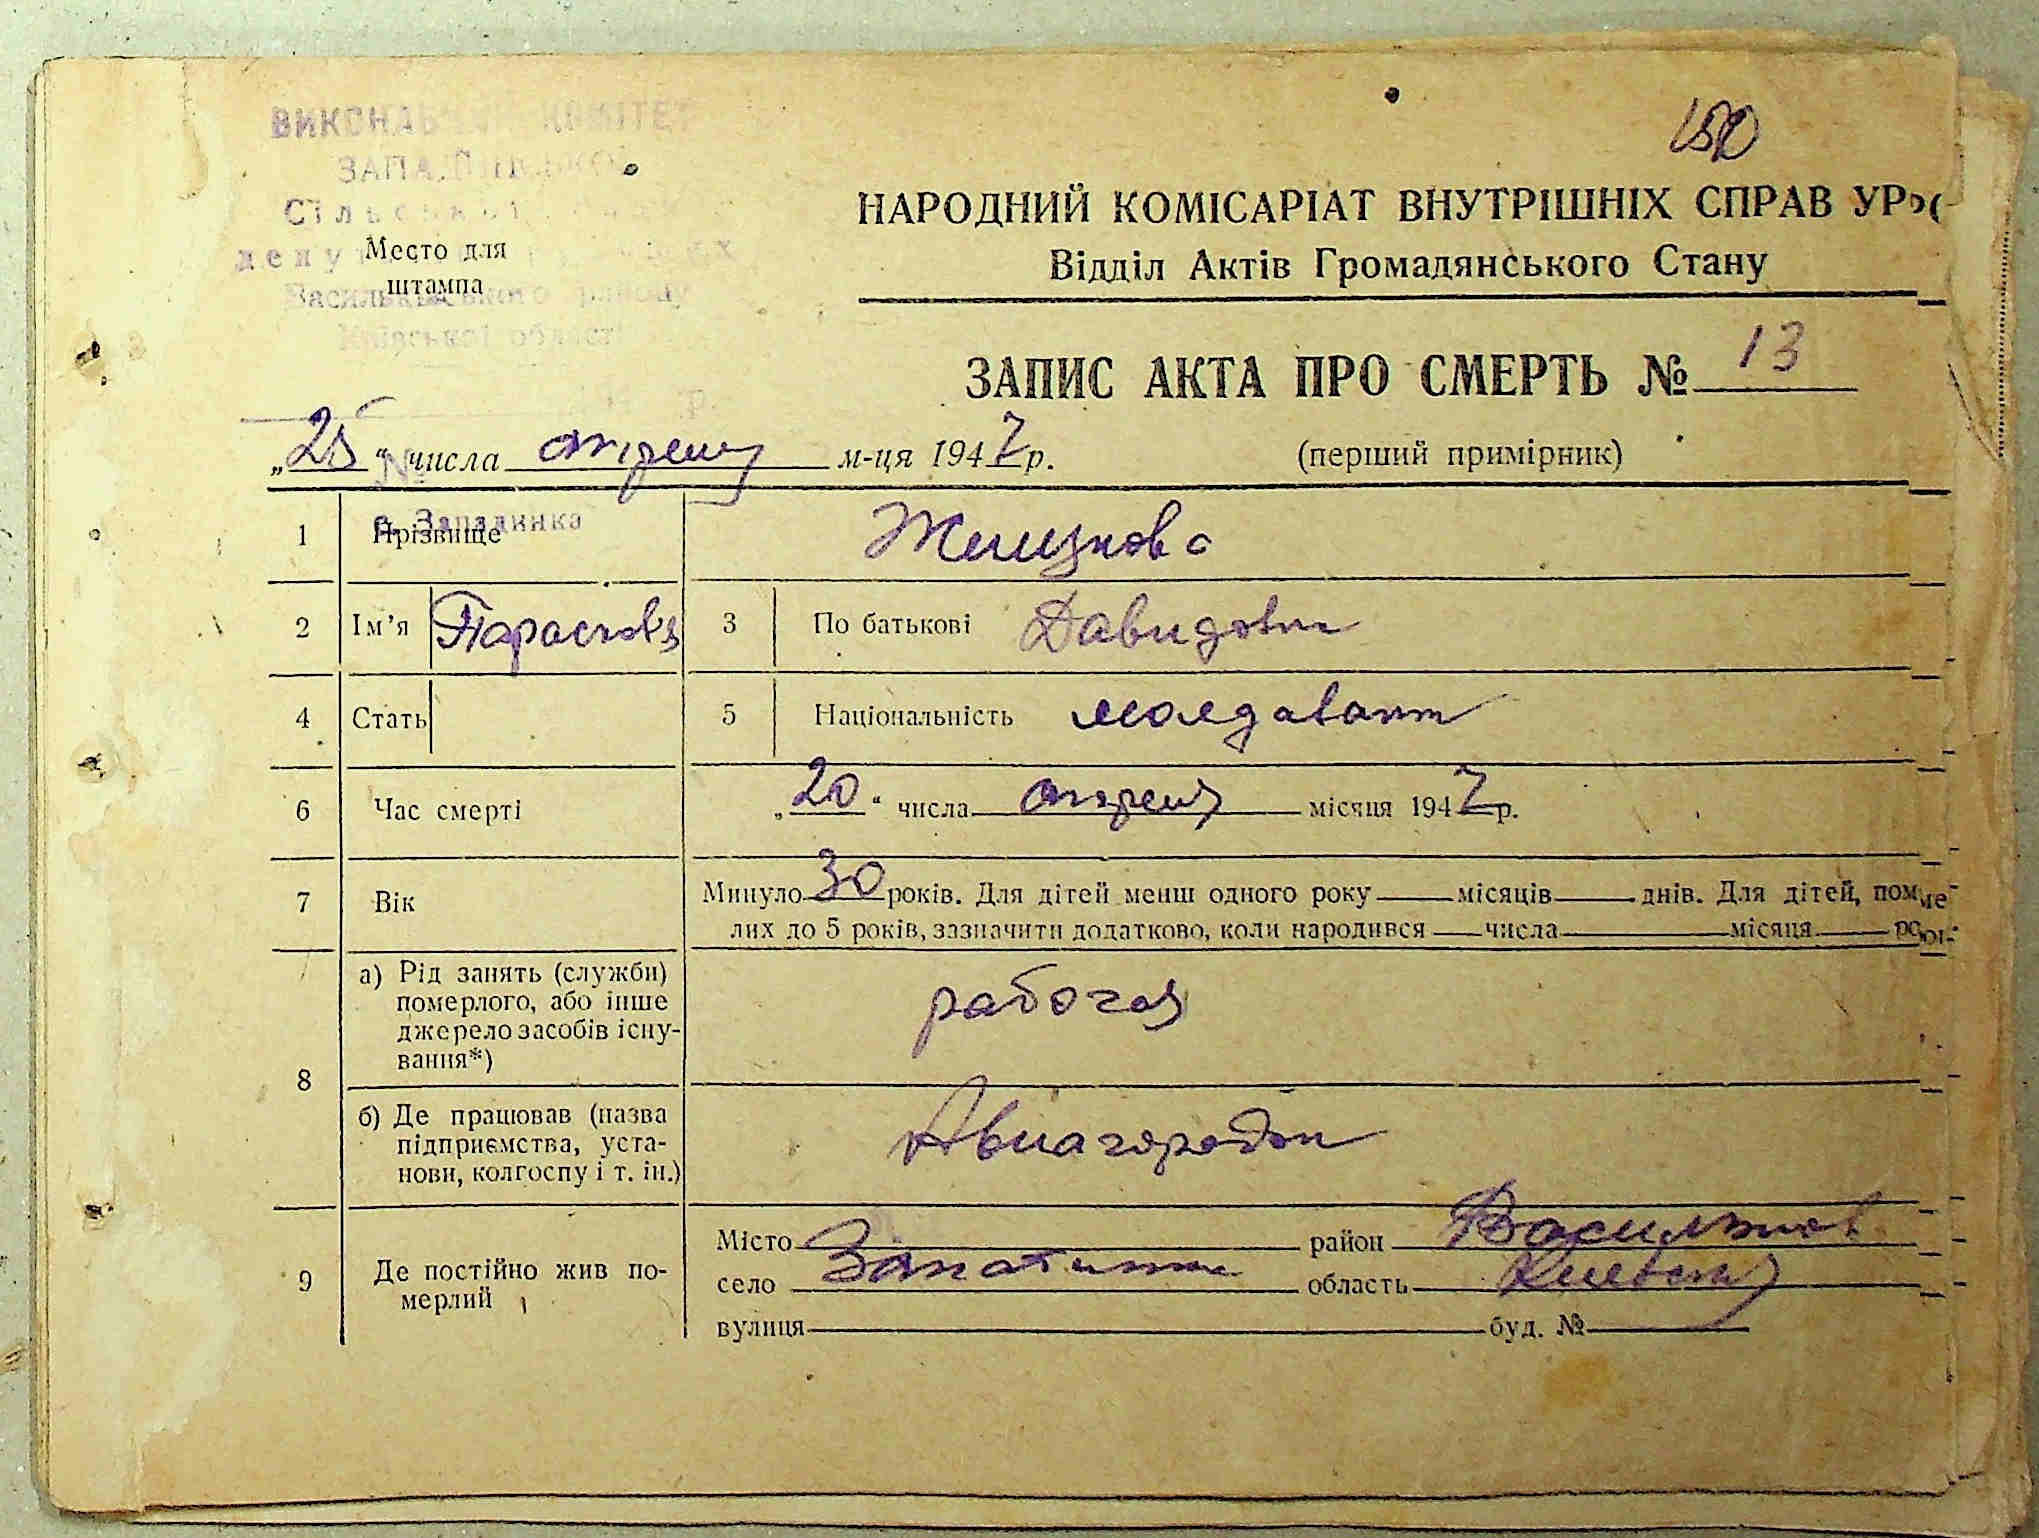 150
ВИКОНАВЧИЙ КОМІТЕТ
ЗАПАДИНСЬКОЇ
Сільської
Васильківського району
Київської області
Место для
штампа
НАРОДНИЙ КОМІСАРІАТ ВНУТРІШНІХ СПРАВ УРС
Відділ Актів Громадянського Стану
ЗАПИС АКТА ПРО СМЕРТЬ № 13
„25“ числа апреля м-ця 1947 р.
(перший примірник)
с. Западинка
1 Прізвище
2 Ім’я Парасковья 3 По батькові Давидовна
4 Стать 5 Національність молдаванка
6 Час смерті „20“ числа апреля місяця 1947 р.
7 Вік Минуло 30 років. Для дітей менш одного року місяців днів. Для дітей, поме-
лих до 5 років, зазначити додатково, коли народився числа місяця
8 а) Рід занять (служби)
померлого, або інше
джерело засобів існу-
вання*)
рабочая
б) Де працював (назва
підприємства, уста-
нови, колгоспу і т. ін.)
Авиагородок
9 Де постійно жив по-
мерлий
Місто район Васильков
село Западинка область Киевская
вулиця буд. №